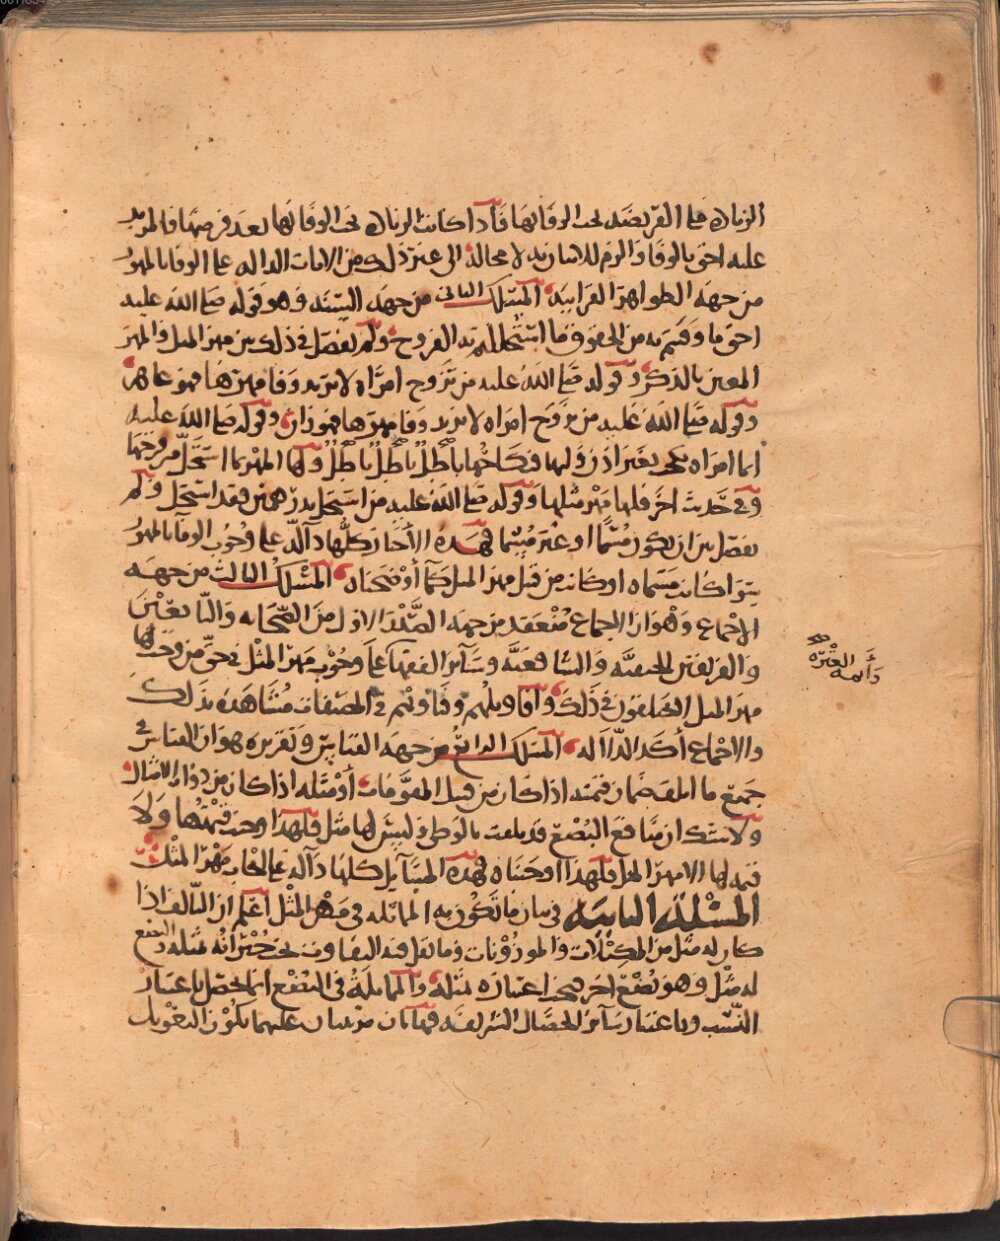 الزيادة على الفريضة يجب الوفا بها فأذا كانت الزيادة يجب الوفا بها بعد فرضها فالمزيد
عليه احق بالوفا والزم للانسان به لا محالة الى غير ذلك من الايات الداله على الوفا بالمهور
من جهه الظواهر القرانيه المسلك الثانى من جهه السنه وهو قوله صلى الله عليه
احق ما وفيتم به من الحقوق ما استحللتم به الفروج ولم يفصل في ذلك بين مهر المثل والمهر
المعين بالذكر وقوله صلى الله عليه من تزوج امراه لا يريد وفا مهرها فهو عاهر
وقوله صلى الله عليه من تزوج امراه لا يريد وفا مهرها فهو زان وقوله صلى الله عليه
ايما امراه نكحت بغير اذن وليها فنكاحها باطل باطل باطل ولها المهر بما استحل من فرجها
وفي حديث اخر فلها مهر مثلها وقوله صلى الله عليه من استحل بدرهمين فقد استحل ولم
يفصل بين ان يكون مسما او غير مسما فهذه الأخبار كلها دآلة على وجوب الوفا بالمهور
سوا كانت مسماه او كانت من قبل مهر المثل كما أوضحناه المسلك الثالث من جهه
الإجماع وهو ان الاجماع منعقد من جهه الصدر الاول من الصحابه والتابعين
والفريقين الحنفيه والشافعيه وسآير الفقها على وجوب مهر المثل في حق من وجب لها
مهر المثل لا يختلفون في ذلك وأقاويلهم وفتاويهم في المصنفات مشاهده بذلك
والاجماع أكد الدلاله المسلك الرابع من جهه القياس وتقريره هو ان القياس في
جميع ما اتلف ضمان قيمته اذا كان من قبل المقومات أو مثله اذا كان من ذوات الامثال
ولا شك ان منافع البضع قد تلفت بالوطي وليس لها مثل فلهذا وجب قيمتها ولا
قيمه لها الا مهر المثل فلهذا اوجبناه فهذه المسآيل كلها دآلة على ايجاب مهر المثل
المسئلة الثانية في بيان ما تكون به المماثله في مهر المثل أعلم ان التالف اذا
كان له مثل من المكيلات والموزونات وما يقل فيه التفاوت يجب جبرانه بمثله والبضع
له مثل وهو بضع اخر فيجب اعتباره بمثله والمماثلة في البضع انما تحصل باعتبار
النسب وباعتبار سآير الخصال الشريفه فهاتان مرتبتان عليهما يكون التعويل
وأيمه العترة صح